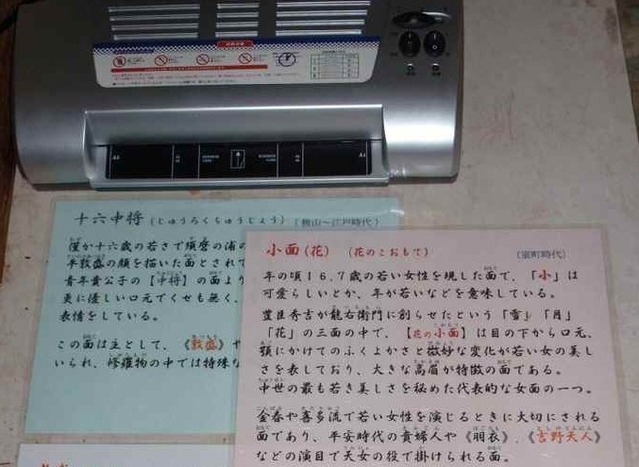 A4
A4
十六中将(じゅうろくちゅうじょう)
僅か十六歳の若さで須磨の浦の
平敦盛の顔を描いた面とされて
青年貴公子の【中将】の面より
更に優しい口元でくせも無く、
表情をしている。
この面は主として、《敦盛》や
いられ、修羅物の中では特殊な
小面(花) (花のこおもて) (室町時代)
年の頃16.7歳の若い女性を現した面で、「小」は
可愛らしいとか、年が若いなどを意味している。
豊臣秀吉が龍右衛門に創らせたという「雪」「月」
「花」の三面の中で、【花の小面】は目の下から口元、
顎にかけてのふくよかさと微妙な変化が若い女の美し
さを表しており、大きな高眉が特徴の面である。
中世の最も若き美しさを秘めた代表的な女面の一つ。
金春や喜多流で若い女性を演じるときに大切にされる
面であり、平安時代の貴婦人や《羽衣》、《吉野天人》
などの演目で天女の役で掛けられる面。